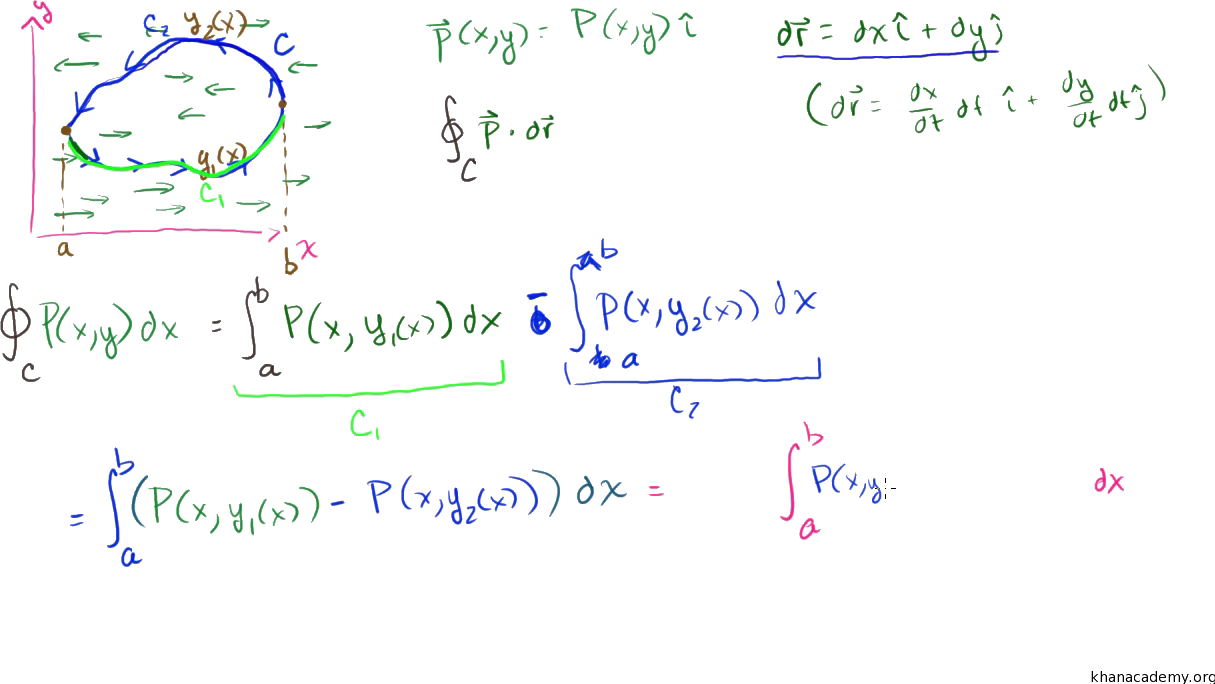 y
C₂ y₂(x) C
y₁(x)
C₁
a b x
P⃗(x,y) = P(x,y) î
dr⃗ = dx î + dy ĵ
(dr⃗ = dx/dt dt î + dy/dt dt ĵ)
∮_C P⃗ · dr⃗
∮_C P(x,y) dx = ∫_a^b P(x, y₁(x)) dx - ∫_a^b P(x, y₂(x)) dx
C₁ C₂
= ∫_a^b (P(x, y₁(x)) - P(x, y₂(x))) dx = ∫_a^b P(x,y dx
khanacademy.org